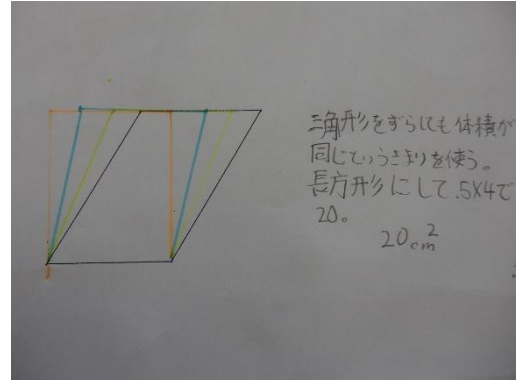 三角形をずらしても体積が
同じというきまりを使う。
長方形にして.5×4で
20。
20cm²